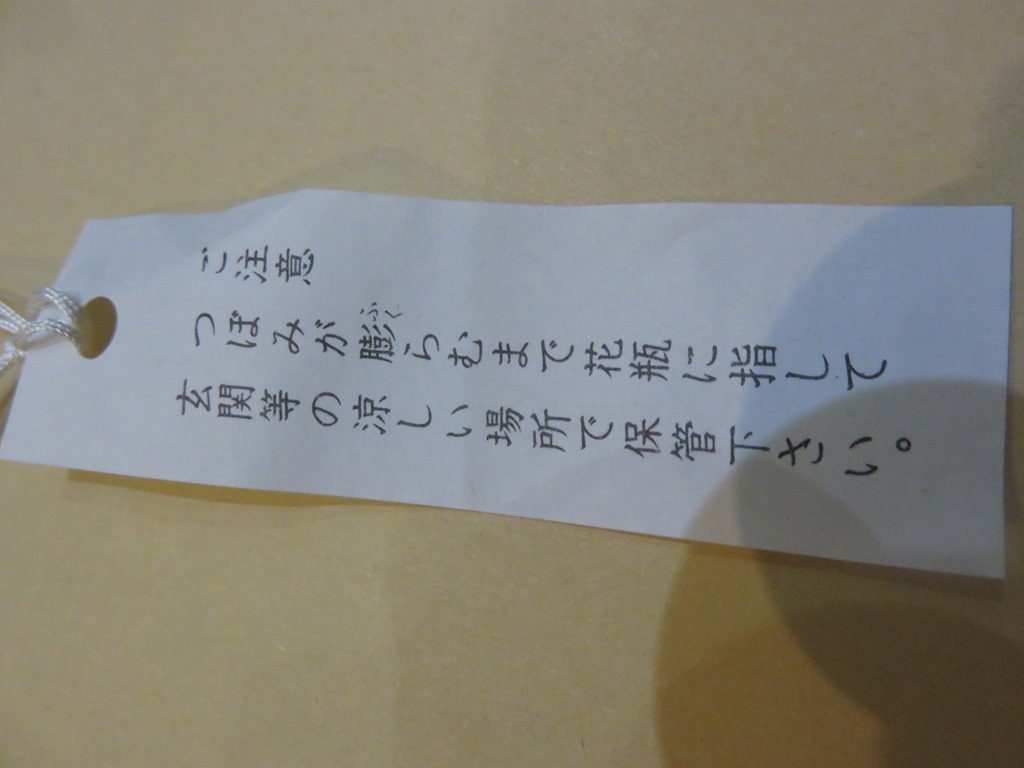 ご注意
つぼみが膨らむまで花瓶に指して
ふく
玄関等の涼しい場所で保管下さい。